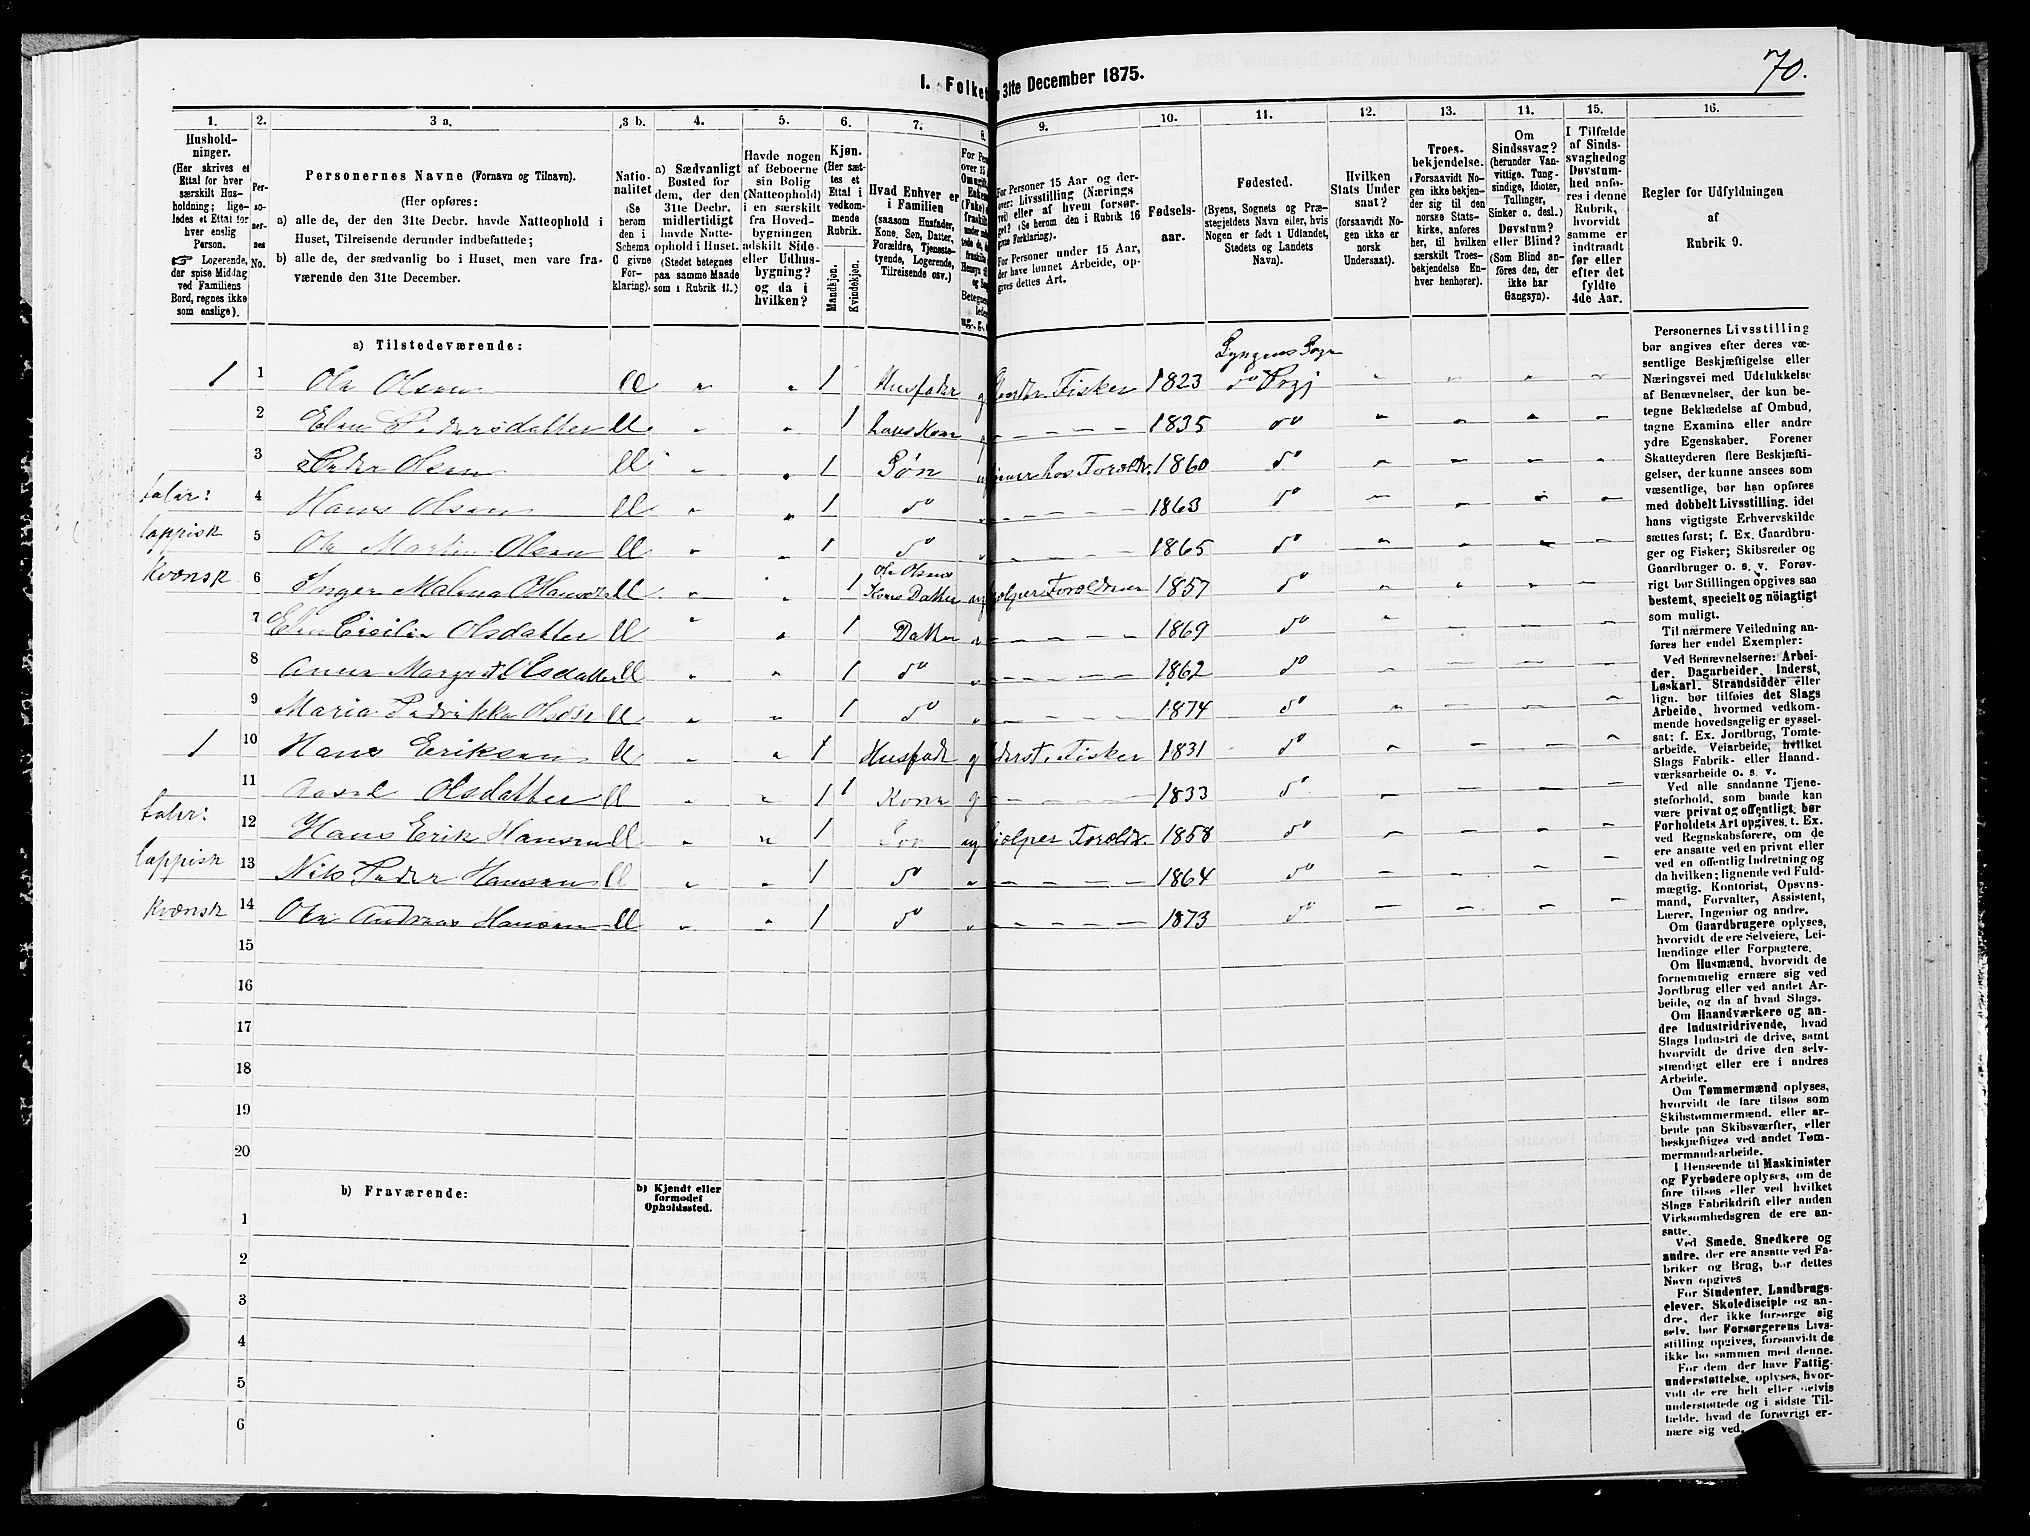 70.
I. Folket 31te December 1875.
1. 2. 3 a. 3 b. 4. 5. 6. 7. 8. 9. 10. 11. 12. 13. 14. 15. 16.
Hushold-
ninger.
(Her skrives et
Ettal for hver
særskilt Hus-
holdning; lige-
ledes et Ettal for
hver enslig
Person.
☞ Logerende,
der spise Middag
ved Familiens
Bord, regnes ikke
som enslige).
Per-
so-
ner-
nes
No.
Personernes Navne (Fornavn og Tilnavn).
(Her opføres:
a) alle de, der den 31te Decbr. havde Natteophold i
Huset, Tilreisende derunder indbefattede;
b) alle de, der sædvanlig bo i Huset, men vare fra-
værende den 31te December.
Natio-
nalitet
(Se
herom
den i
Schema
C givne
For-
klaring).
a) Sædvanligt
Bosted for
dem, der den
31te Decbr.
midlertidigt
havde Natte-
ophold i Huset.
(Stedet betegnes
paa samme Maade
som i Rubrik 11.)
Havde nogen
af Beboerne
sin Bolig
(Natteophold)
i en særskilt
fra Hoved-
bygningen
adskilt Side-
eller Udhus-
bygning?
og da i
hvilken?
Kjøn.
(Her sæt-
tes et
Ettal i
vedkom-
mende
Rubrik.
Mandkjøn.
Kvindekjøn.
Hvad Enhver er
i Familien
(saasom Husfader,
Kone, Søn, Datter,
Forældre, Tjeneste-
tyende, Logerende,
Tilreisende osv.)
For Personer 15 Aar og der-
over: Livsstilling (Nærings
vei) eller af hvem forsør-
get? (Se herom den i Rubrik 16
givne Forklaring).
For Personer under 15 Aar,
der have lønnet Arbeide, op-
gives dettes Art.
Fødsels-
aar.
Fødested.
(Byens, Sognets og Præ-
stegjeldets Navn eller, hvis
Nogen er født i Udlandet,
Stedets og Landets
Navn).
Hvilken
Stats Under
saat?
(forsaavidt No-
gen ikke er
norsk
Undersaat).
Troes-
bekjendelse.
(Forsaavidt No-
gen ikke bekjen-
der sig til den
norske Stats-
kirke, anføres
her, til hvilken
særskilt Troes-
bekjendelse En-
hver henhorer).
Om
Sindssvag?
(herunder Van-
vittige, Tung-
sindige, Idioter,
Tullinger,
Sinker o. desl.)
Døvstum?
eller Blind?
(Som Blind an-
føres den, der
ikke har
Gangsyn).
I Tilfælde
af Sinds-
svaghedog
Døvstum-
hed anfø-
res i denne
Rubrik,
hvorvidt
samme er
indtraadt
før eller
efter det
fyldte
4de Aar.
Regler for Udfyldningen
af
Rubrik 9.
a) Tilstedeværende:
Lyngens Sogn
1 1 Ole Olsen Husfader g Fisker 1823 do Prgj
2 Elen Pedersdatter hans Kone g 1835 do
3 Peder Olsen Søn hos Foreldr. 1860 do
taler:
4 Hans Olsen do 1863 do
lappisk
5 Ole Martin Olsen do 1865 do
kvænsk
6 Inger Malena Ole Olsens Kones Datter ug 1857 do
7 Elen Cicilie Olsdatter Datter 1869 do
8 Anna Margret Olsdatter do 1862 do
9 Maria do 1874 do
1 10 Hans Eriksen Husfader g Fisker 1831 do
11 Olsdatter Kone g 1833 do
taler:
12 Hans Erik Hansen Søn ug hjelper Foreldr. 1858 do
lappisk
13 Nils Peder Hansen do 1864 do
kvænsk
14 Ole Andreas Hansen do 1873 do
15
16
17
18
19
20
b) Fraværende:
b) Kjendt eller
formodet
Opholdssted.
1
2
3
4
5
6
Personernes Livsstilling
bør angives efter deres væ-
sentlige Beskjæftigelse eller
Næringsvei med Udelukkelse
af Benævnelser, der kun be-
tegne Beklædelse af Ombud,
tagne Examina eller andre
ydre Egenskaber. Forener
Skatteyderen flere Beskjæfti-
gelser, der kunne ansees som
væsentlige, bør han opføres
med dobbelt Livsstilling, idet
hans vigtigste Erhvervskilde
sættes først; f. Ex. Gaardbru-
ger og Fisker; Skibsreder og
Gaardbruger o. s. v. Forøv-
rigt bør Stillingen opgives saa
bestemt, specielt og nöiagtigt
som muligt.
Til nærmere Veiledning an-
føres her endel Exempler:
Ved Benævnelserne: Arbei-
der, Dagarbeider, Inderst,
Løskarl, Strandsidder eller
lign. bør tilføies det Slags
Arbeide, hvormed vedkom-
mende hovedsagelig er syssel-
sat; f. Ex. Jordbrug, Tomte-
arbeide, Veiarbeide, hvilket
Slags Fabrik- eller Haand-
værksarbeide o. s. v.
Ved alle saadanne Tjene-
steforhold, som baade kan
være privat og offentligt, bør
Forholdets Art opgives, t. Ex.
ved Regnskabsførere, om de
ere ansatte ved en privat eller
ved en offentlig Indretning og
da hvilken; lignende ved Fuld-
mægtig, Kontorist, Opsyns-
mand, Forvalter, Assistent,
Lærer, Ingeniør og andre.
Om Gaardbrugere oplyses,
hvorvidt de ere Selveiere, Lei-
lændinge eller Forpagtere.
Om Husmænd, hvorvidt de
fornemmelig ernære sig ved
Jordbrug eller ved andet Ar-
beide, og da af hvad Slags.
Om Haandværkere og an-
dre Industridrivende, hvad
Slags Industri de drive, samt
hvorvidt de drive den selv-
stændigt eller ere i andres
Arbeide.
Om Tømmermænd oplyses,
hvorvidt de fare tilsøs som
Skibstømmermænd, eller ar-
beide paa Skibsværfter, eller
beskjæftiges ved andet Tøm-
mermandsarbeide.
I Henseende til Maskinister
og Fyrbødere oplyses, om de
fare tilsøs eller ved hvilket
Slags Fabrikdrift eller anden
Virksomhedsgren de ere an-
satte.
Ved Smede, Snedkere og
andre, der ere ansatte ved Fa-
briker og Brug, bør dettes
Navn opgives
For Studenter, Landbrugs-
elever, Skoledisciple og an-
dre, der ikke forsørge sig
selv, bør Forsørgerens Livs-
stilling opgives, forsaavidt de
ikke bo sammen med denne.
For dem, der have Fattig-
understøttelse, oplyses, hvor-
vidt de ere helt eller delvis
understøttede og i sidste Til-
fælde, hvad de forøvrigt er-
nære sig ved.